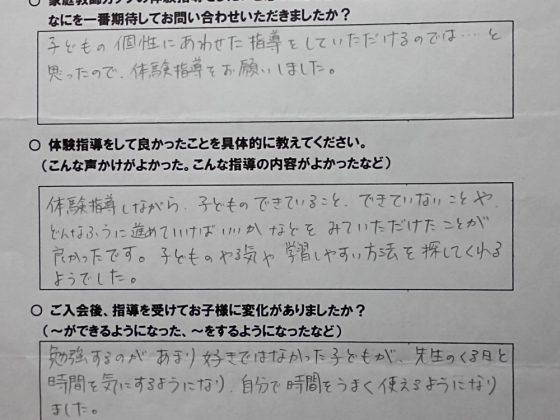 なにを一番期待してお問い合わせいただきましたか？
子どもの個性にあわせた指導をしていただけるのでは……と
思ったので、体験指導をお願いしました。
○ 体験指導をして良かったことを具体的に教えてください。
（こんな声かけがよかった。こんな指導の内容がよかったなど）
体験指導しながら、子どものできていること、できていないことや、
どんなふうに進めていけばいいかなどをみていただけたことが
良かったです。子どものやる気や学習しやすい方法を探してくれる
ようでした。
○ ご入会後、指導を受けてお子様に変化がありましたか？
（～ができるようになった、～をするようになったなど）
勉強するのがあまり好きではなかった子どもが、先生のくる日と
時間を気にするようになり、自分で時間をうまく使えるようになり
ました。